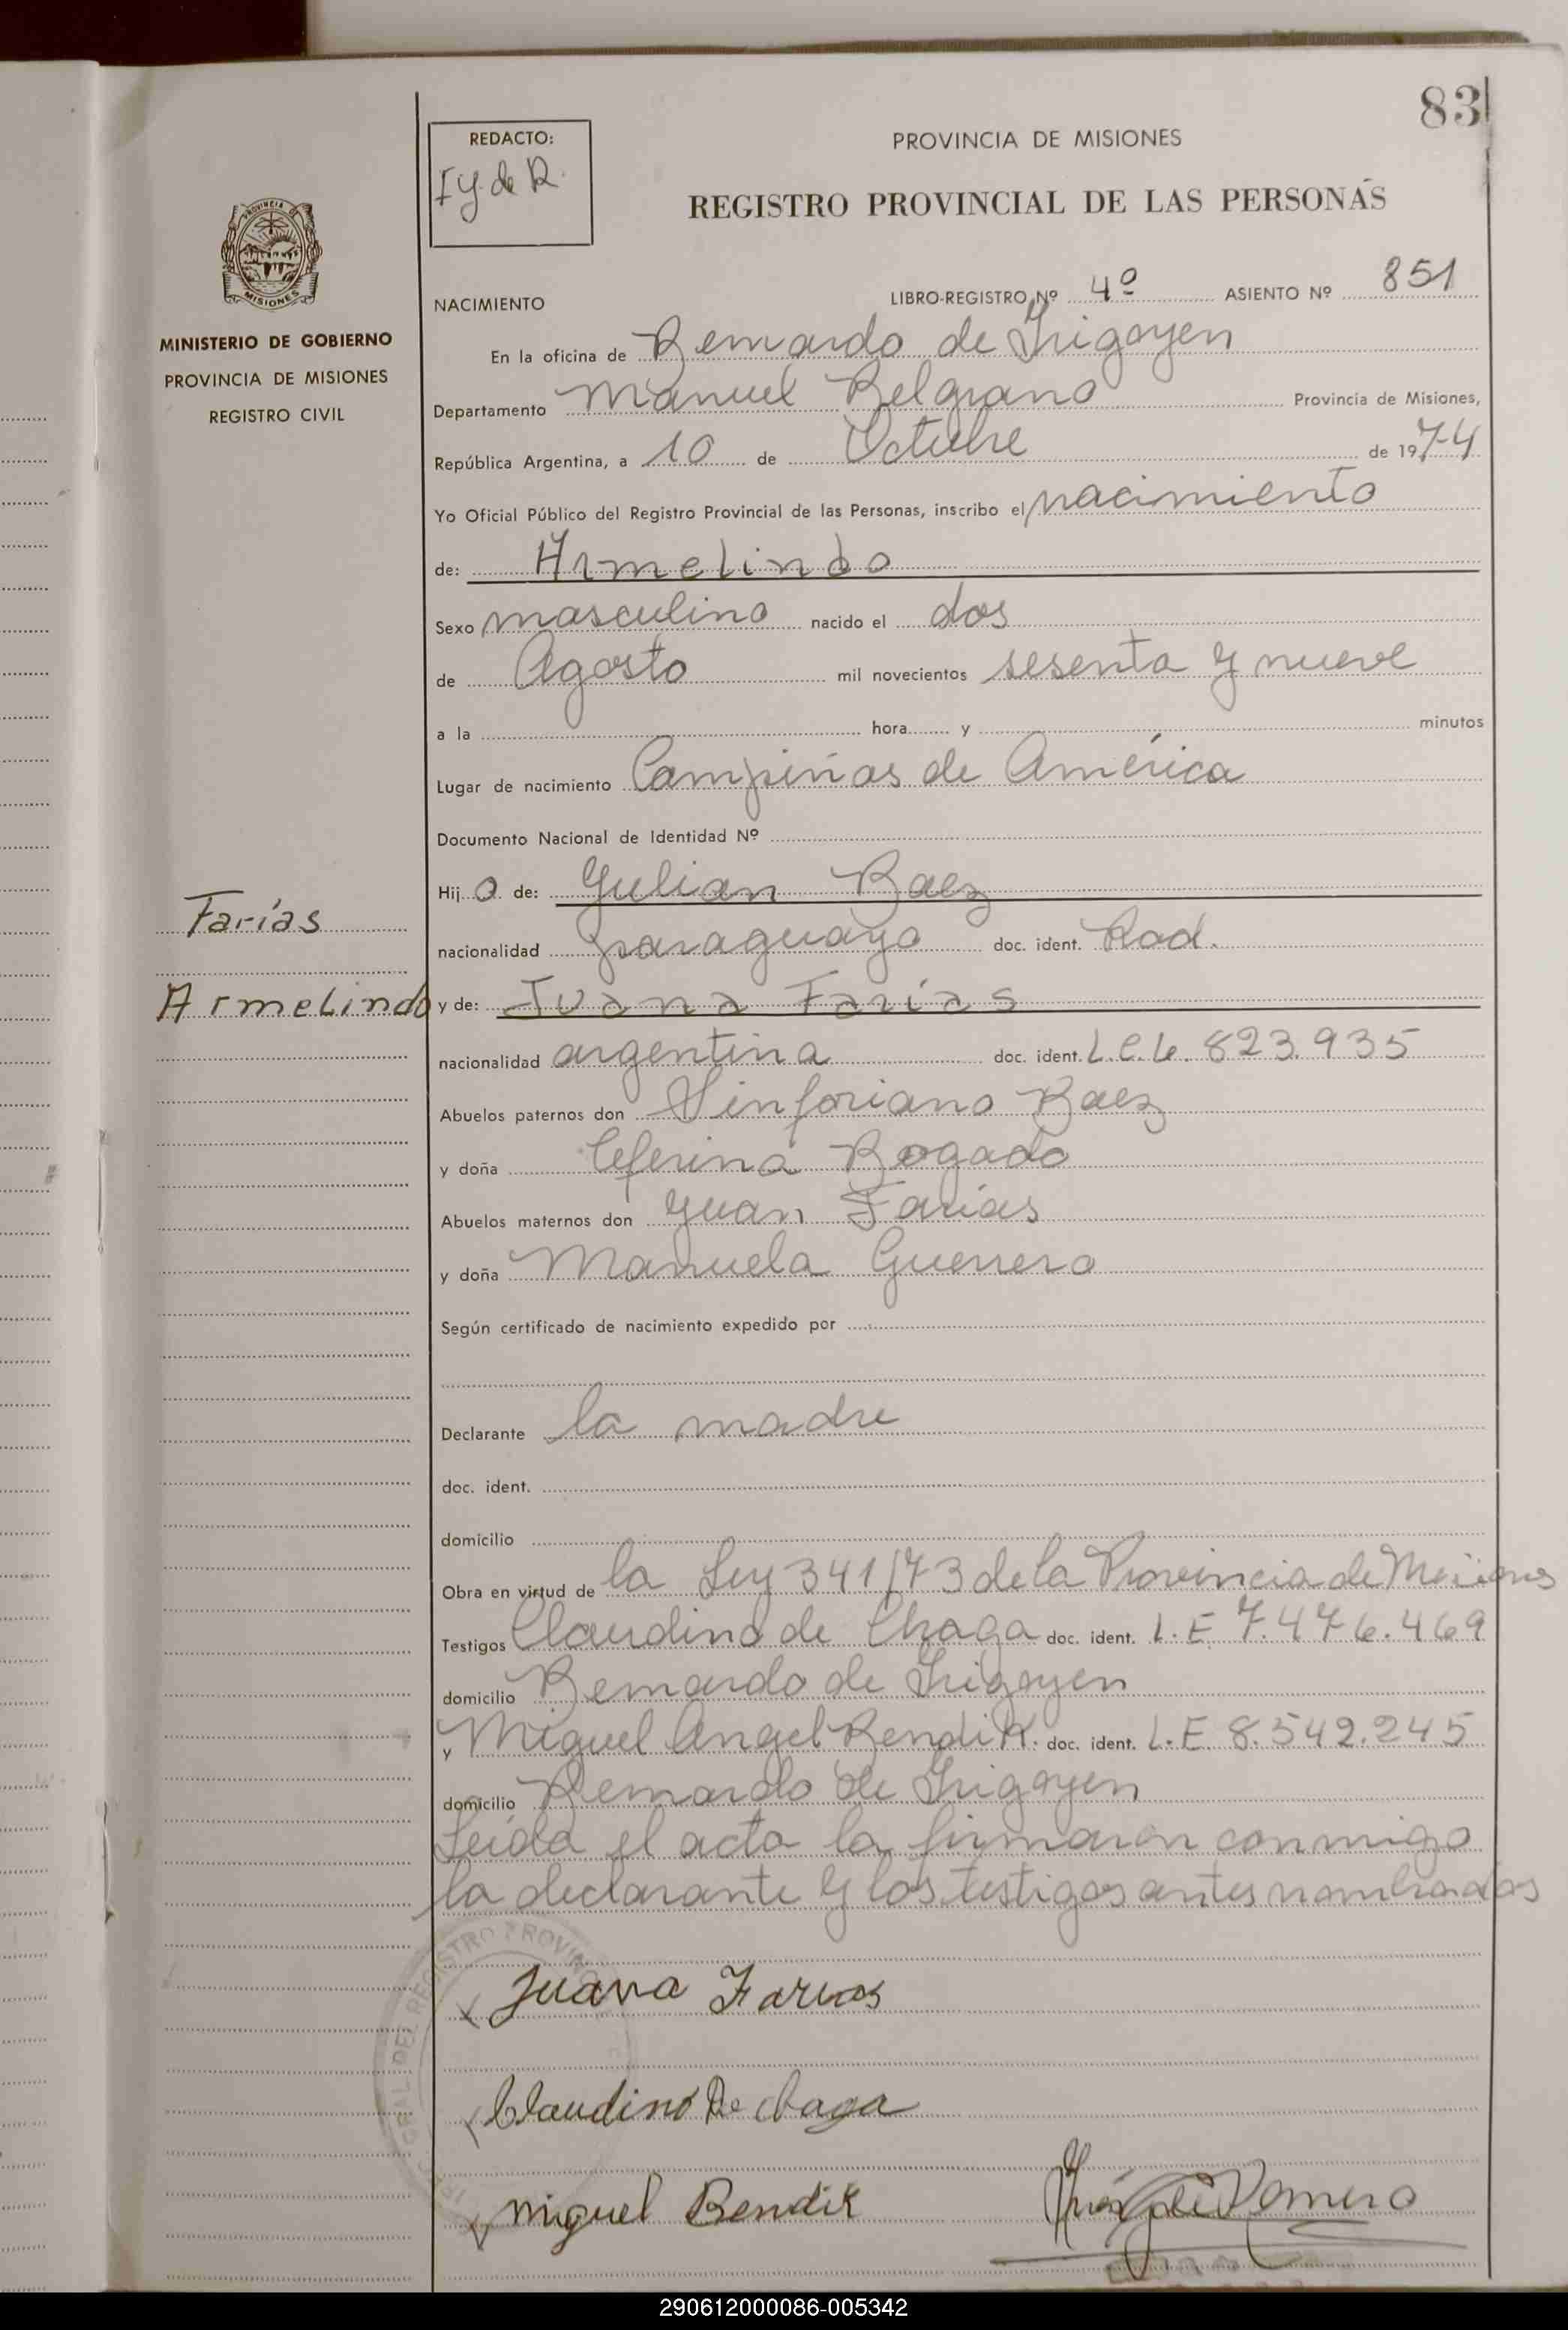 83
REDACTO:
I Y. de R.
PROVINCIA DE MISIONES
REGISTRO PROVINCIAL DE LAS PERSONAS
PROVINCIA DE
MISIONES
MINISTERIO DE GOBIERNO
PROVINCIA DE MISIONES
REGISTRO CIVIL
NACIMIENTO LIBRO-REGISTRO Nº 4º ASIENTO Nº 851
En la oficina de Bernardo de Irigoyen
Departamento Manuel Belgrano Provincia de Misiones,
República Argentina, a 10 de Octubre de 1974
Yo Oficial Público del Registro Provincial de las Personas, inscribo el nacimiento
de: Armelindo
Sexo masculino nacido el dos
de Agosto mil novecientos sesenta y nueve
a la hora y minutos
Lugar de nacimiento Campiñas de América
Documento Nacional de Identidad Nº
Hijo de: Julian Baez
Farías
nacionalidad paraguayo doc. ident. Rad.
Armelindo
y de: Juana Farías
nacionalidad argentina doc. ident. L.C. 6.823.935
Abuelos paternos don Sinforiano Baez
y doña Ceferina Bogado
Abuelos maternos don Juan Farías
y doña Manuela Guerrero
Según certificado de nacimiento expedido por
Declarante la madre
doc. ident.
domicilio
Obra en virtud de la Ley 341/73 de la Provincia de Misiones
Testigos Claudino de Chaga doc. ident. L.E. 7.476.469
domicilio Bernardo de Irigoyen
y Miguel Angel Bendik. doc. ident. L.E. 8.542.245
domicilio Bernardo de Irigoyen
Leída el acta la firmaron conmigo
la declarante y los testigos antes nombrados
Juana Farias
Claudino De chaga
Miguel Bendik
de Romero
290612000086-005342